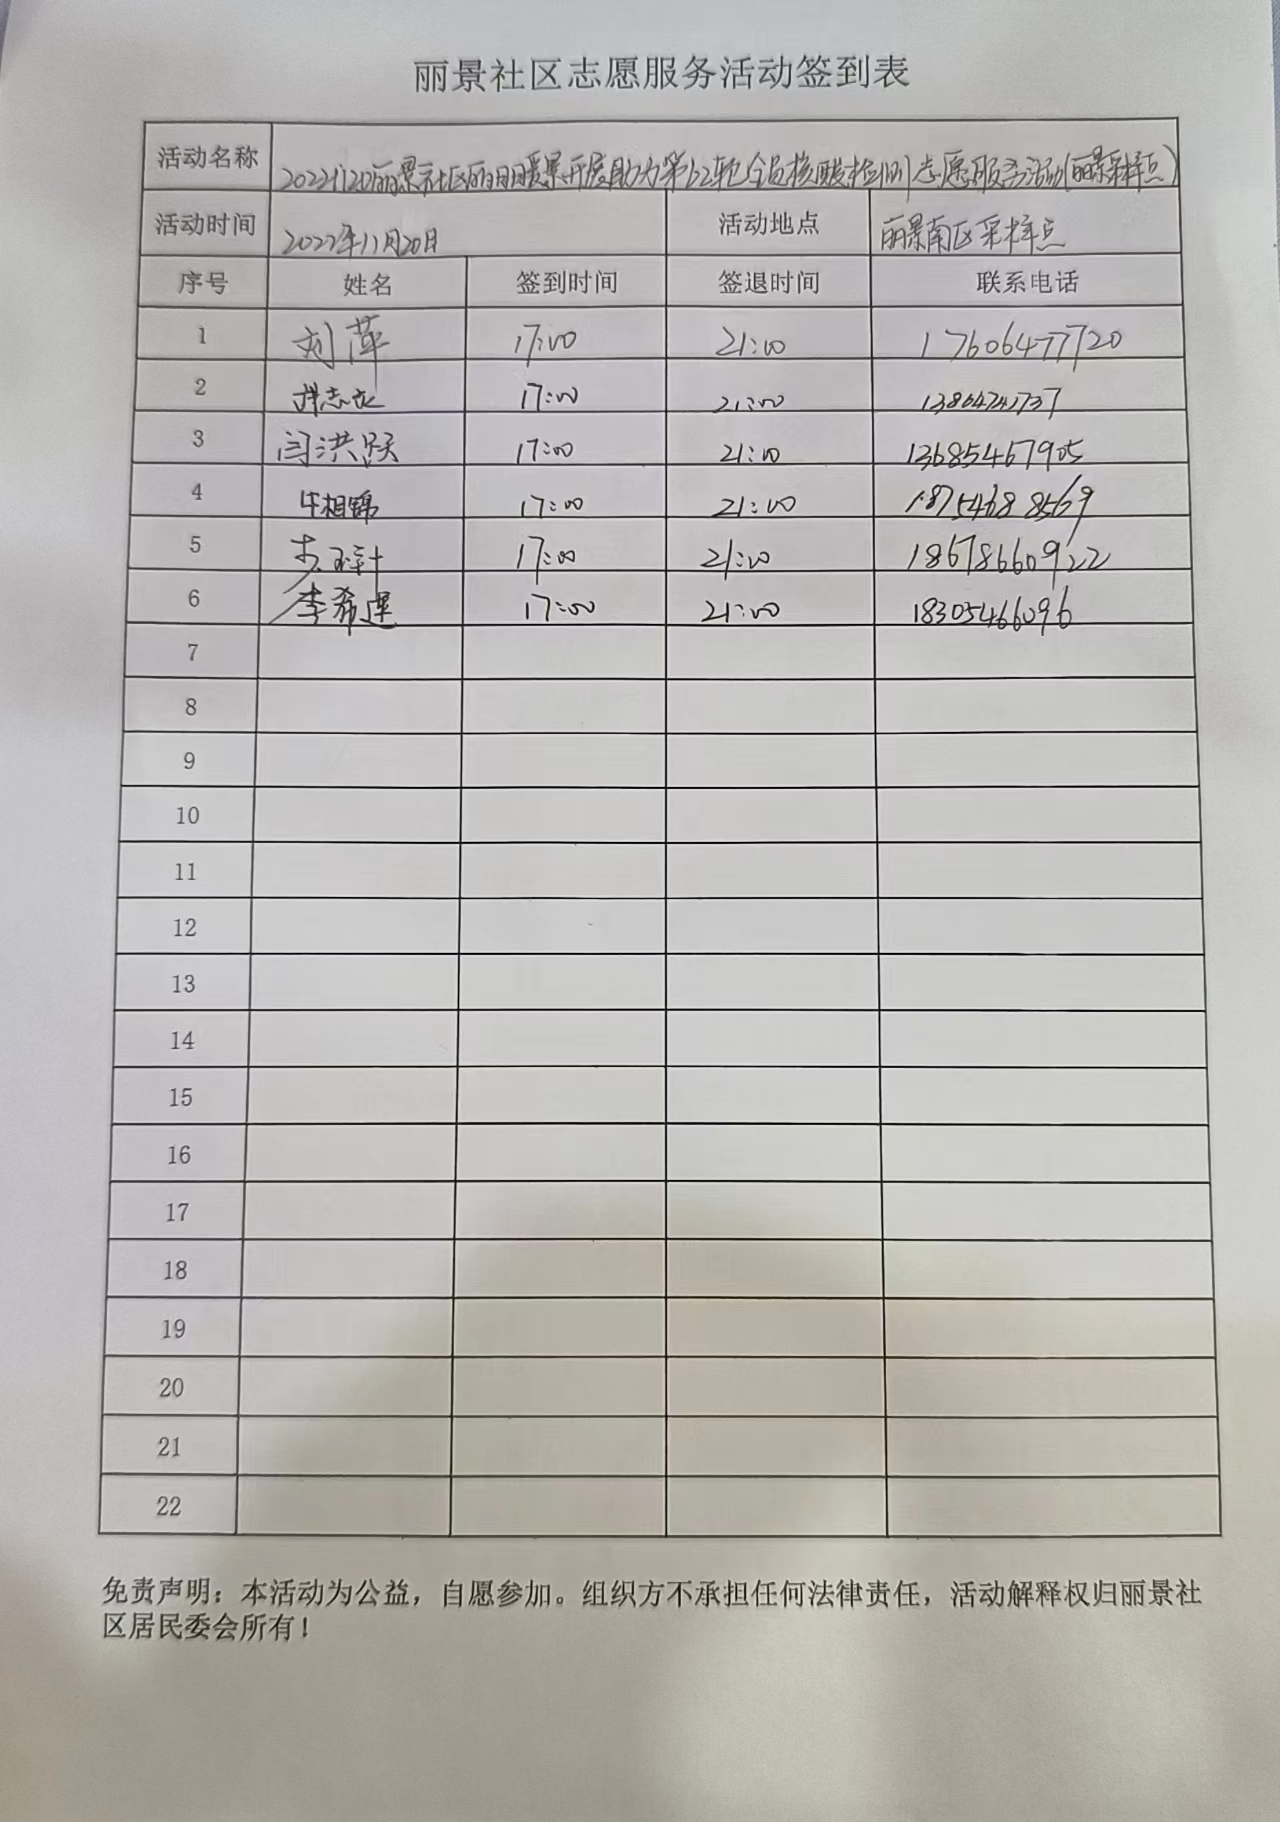 丽景社区志愿服务活动签到表
活动名称 20221120丽景社区丽日暖景开展助力第62轮全员核酸检测志愿服务活动(丽景采样点)
活动时间 2022年11月20日 活动地点 丽景南区采样点
序号 姓名 签到时间 签退时间 联系电话
1 刘萍 17:00 21:00 17606477720
2 志 17:00 21:00
3 闫洪跃 17:00 21:00 13685467905
4 牛相锦 17:00 21:00 18754688569
5 17:00 21:00 18678660922
6 李希莲 17:00 21:00 18305466096
7
8
9
10
11
12
13
14
15
16
17
18
19
20
21
22
免责声明：本活动为公益，自愿参加。组织方不承担任何法律责任，活动解释权归丽景社
区居民委会所有！